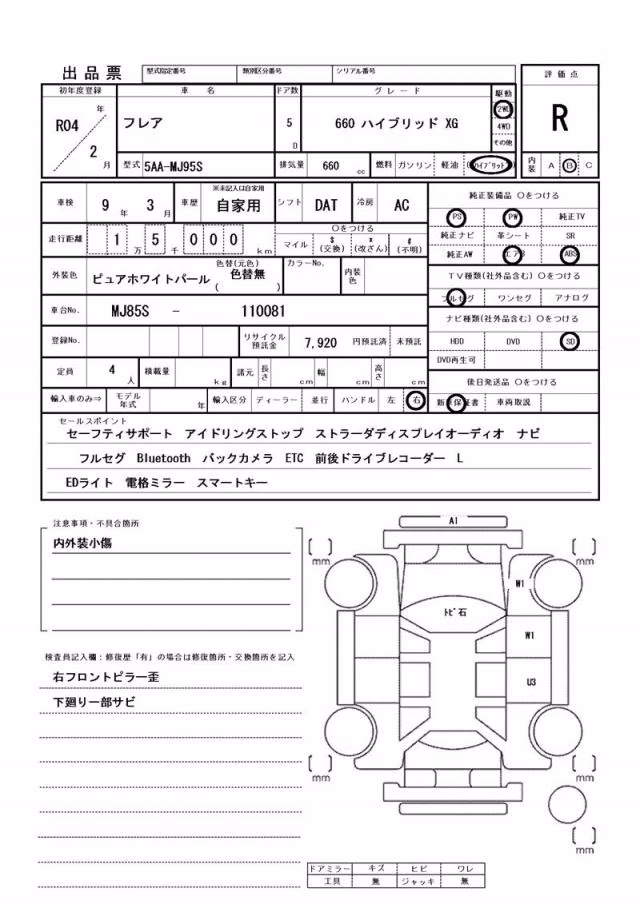 出品票 型式指定番号 類別区分番号 シリアル番号
評価点
R
初年度登録 車名 ドア数 グレード 駆動
R04年2月 フレア 5D 660 ハイブリッド XG 2WD
4WD
その他
型式 5AA-MJ95S 排気量 660cc 燃料 ガソリン 軽油 (ハイブリッド) 内装 A B C
車検 9年3月 車歴 ※未記入は自家用 自家用 シフト DAT 冷房 AC
走行距離 1万5千000km 〇をつける
マイル $(交換) x(改ざん) #(不明)
外装色 ピュアホワイトパール 色替(元色) (色替無) カラーNo. 内装色
車台No. MJ85S - 110081
登録No. リサイクル預託金 7,920 円預託済 未預託
定員 4人 積載量 kg 諸元 長さ cm 幅 cm 高さ cm
輸入車のみ⇒ モデル年式 年 輸入区分 ディーラー 並行 ハンドル 左 右
純正装備品 〇をつける
PS PW 純正TV
純正ナビ 革シート SR
純正AW エアB ABS
TV種類(社外品含む) 〇をつける
フルセグ ワンセグ アナログ
ナビ種類(社外品含む) 〇をつける
HDD DVD SD
DVD再生可
後日発送品 〇をつける
新車保証書 車両取説
セールスポイント
セーフティサポート アイドリングストップ ストラーダディスプレイオーディオ ナビ
フルセグ Bluetooth バックカメラ ETC 前後ドライブレコーダー L
EDライト 電格ミラー スマートキー
注意事項・不具合箇所
内外装小傷
検査員記入欄:修復歴「有」の場合は修復箇所・交換箇所を記入
右フロントピラー歪
下廻り一部サビ
A1
[ ]mm [ ]mm
W1
トビ石
W1
U3
[ ]mm [ ]mm
[ ]mm
ドアミラー キズ ヒビ ワレ
工具 無 ジャッキ 無